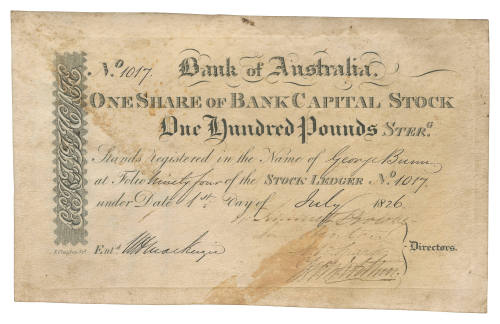 CERTIFICATE
No. 1017.
Bank of Australia.
ONE SHARE OF BANK CAPITAL STOCK
One Hundred Pounds STERG
Stands Registered in the Name of George Bunn
at Folio ninety four of the STOCK LEDGER No. 1017.
under Date 1st Day of July 1826
Entd. Mackenzie
Directors.